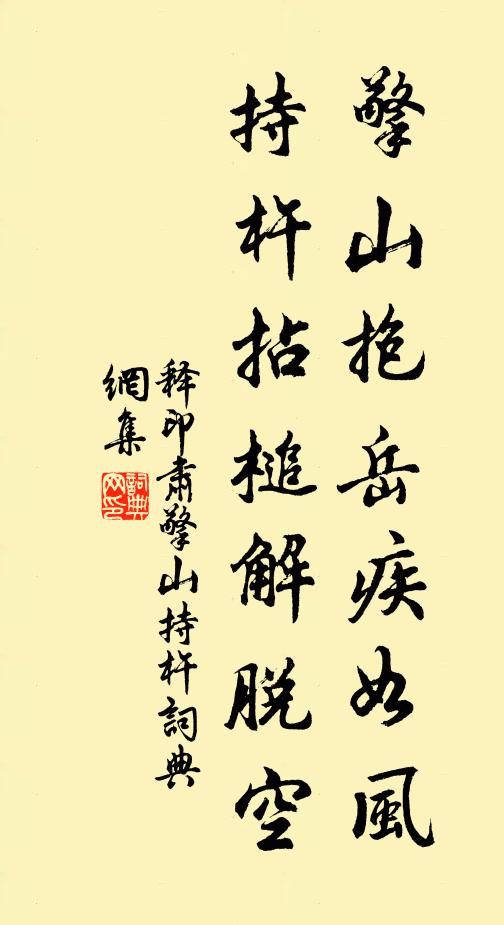 擎山抱岳疾如風
持杵拈槌解脫空
释印肅擎山持杵詞典
網集
詞典
网印